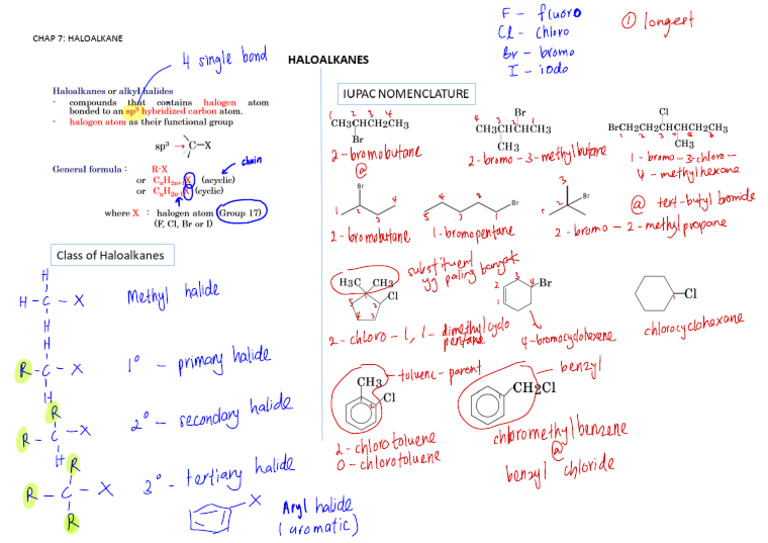 CHAP 7: HALOALKANE
4 single bond
HALOALKANES
F - fluoro
Cl - chloro
Br - bromo
I - iodo
① longest
Haloalkanes or alkyl halides
- compounds that contains halogen atom
bonded to an sp3 hybridized carbon atom.
- halogen atom as their functional group
sp3 → C – X
General formula : R-X
or CnH2n+1X (acyclic)
or CnH2n-1X (cyclic)
chain
where X : halogen atom (Group 17)
(F, Cl, Br or I)
Class of Haloalkanes
H - C - X
H
H
Methyl halide
H
R - C - X
H
1° - primary halide
R
R - C - X
H
2° - secondary halide
R
R - C - X
R
3° - tertiary halide
X
Aryl halide
(aromatic)
IUPAC NOMENCLATURE
1 2 3 4
CH3CHCH2CH3
Br
2-bromobutane
@
Br
1 2 3 4
CH3CHCHCH3
CH3
2-bromo-3-methylbutane
Cl
1 2 3 4 5 6
BrCH2CH2CHCHCH2CH3
CH3
1-bromo-3-chloro-
4-methylhexane
Br
1 2 3 4
2-bromobutane
5 4 3 2 1
Br
1-bromopentane
3
Br
1 2
@ tert-butyl bromide
2-bromo-2-methylpropane
H3C CH3
Cl
1 2 3 4 5
substituent
yg paling banyak
2-chloro-1,1-dimethylcyclo
pentane
Br
1 2 3 4
4-bromocyclohexene
Cl
1
chlorocyclohexane
CH3
Cl
1 2
toluene-parent
2-chlorotoluene
O-chlorotoluene
CH2Cl
1
benzyl
chloromethylbenzene
@
benzyl chloride